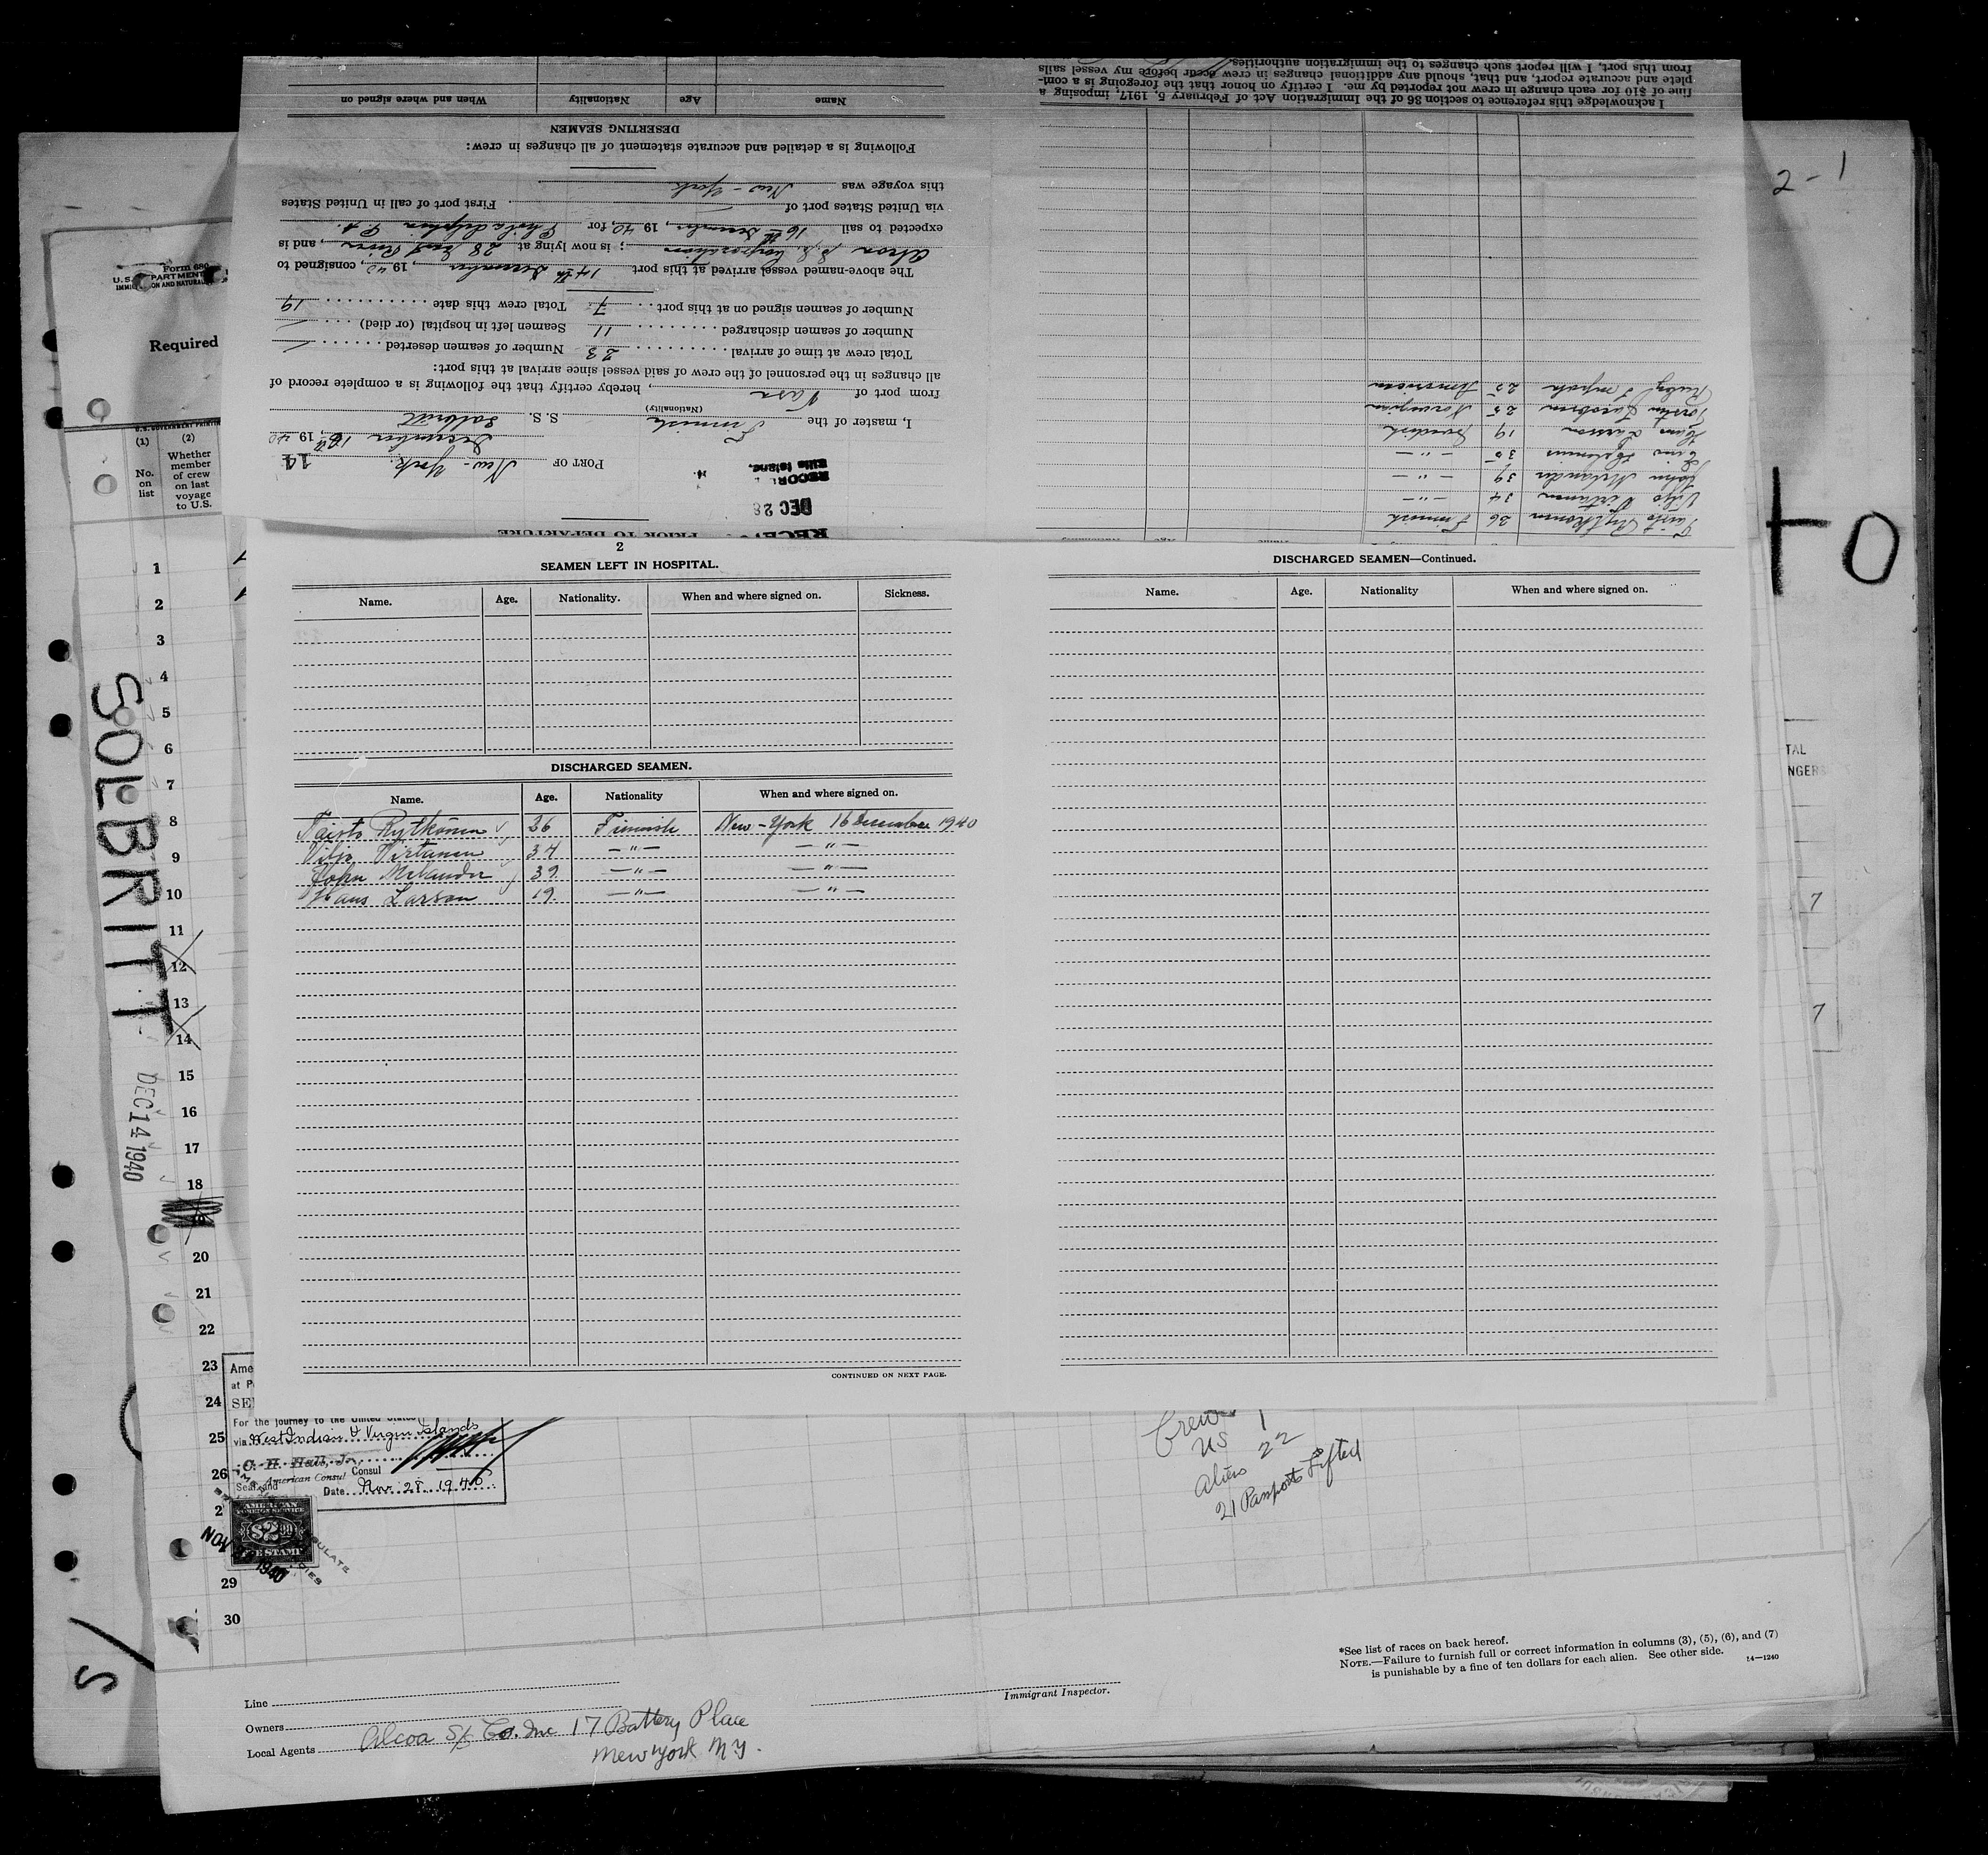 I acknowledge this reference to section 36 of the Immigration Act of February 5, 1917, imposing a
fine of $10 for each change in crew not reported by me. I certify on honor that the foregoing is a com-
plete and accurate report, and that, should any additional changes in crew occur before my vessel sails
from this port, I will report such changes to the immigration authorities.
RECE PRIOR TO DEPARTURE
DEC 28
RECOR
Ellis Island,
PORT OF New-York.
December 16th, 1940
14
I, master of the Finnish S. S. Solbritt
(Nationality)
from port of Vasa, hereby certify that the following is a complete record of
all changes in the personnel of the crew of said vessel since arrival at this port:
Total crew at time of arrival 23 Number of seamen deserted
Number of seamen discharged 11 Seamen left in hospital (or died)
Number of seamen signed on at this port 7 Total crew this date 19
The above-named vessel arrived at this port 14th December, 1940, consigned to
; is now lying at 28 East River, and is
expected to sail 16th December, 1940, for Philadelphia Pa.
via United States port of . First port of call in United States
this voyage was New-York
Following is a detailed and accurate statement of all changes in crew:
DESERTING SEAMEN
Name Age Nationality When and where signed on
Taisto Rytkönen 36 Finnish
Viljo Virtanen 34 —"—
John Melander 39 —"—
35 —"—
Hans Larsson 19 Swedish
Torsten 25 Norwegian
25 American
2
SEAMEN LEFT IN HOSPITAL.
Name. Age. Nationality. When and where signed on. Sickness.
DISCHARGED SEAMEN.
Name. Age. Nationality When and where signed on.
Taisto Rytkönen 36 Finnish New-York 16 December 1940
Viljo Virtanen 34 —"— —"—
John Melander 39 —"— —"—
Hans Larson 19 —"— —"—
CONTINUED ON NEXT PAGE.
DISCHARGED SEAMEN—Continued.
Name. Age. Nationality When and where signed on.
2-1
TO
TAL
NGERS
7
7
Form 680
U. S. DEPARTMENT
IMMIGRATION AND NATURAL
Required
U.S. GOVERNMENT PRINTIN
(1) (2)
No. on list
Whether member of crew on last voyage to U.S.
SOLBRITT
DEC 14 1940
1
2
3
4
5
6
7
8
9
10
11
12
13
14
15
16
17
18
19
20
21
22
23
24
25
26
2
29
30
Ame
at P
SE
For the journey to the United States
via West Indian & Virgin Islands
C. H. Hall, Jr.
American Consul
Consul
Seal and
Date Nov 28 1940
AMERICAN
FOREIGN SERVICE
$2.00
FEE STAMP
NOV 1940
Crew
US 1
Aliens 22
21 Passports Lifted
*See list of races on back hereof.
NOTE.—Failure to furnish full or correct information in columns (3), (5), (6), and (7)
is punishable by a fine of ten dollars for each alien. See other side. 14—1240
Immigrant Inspector.
Line
Owners
Local Agents Alcoa S/S Co. Inc 17 Battery Place
New York N Y.
S/